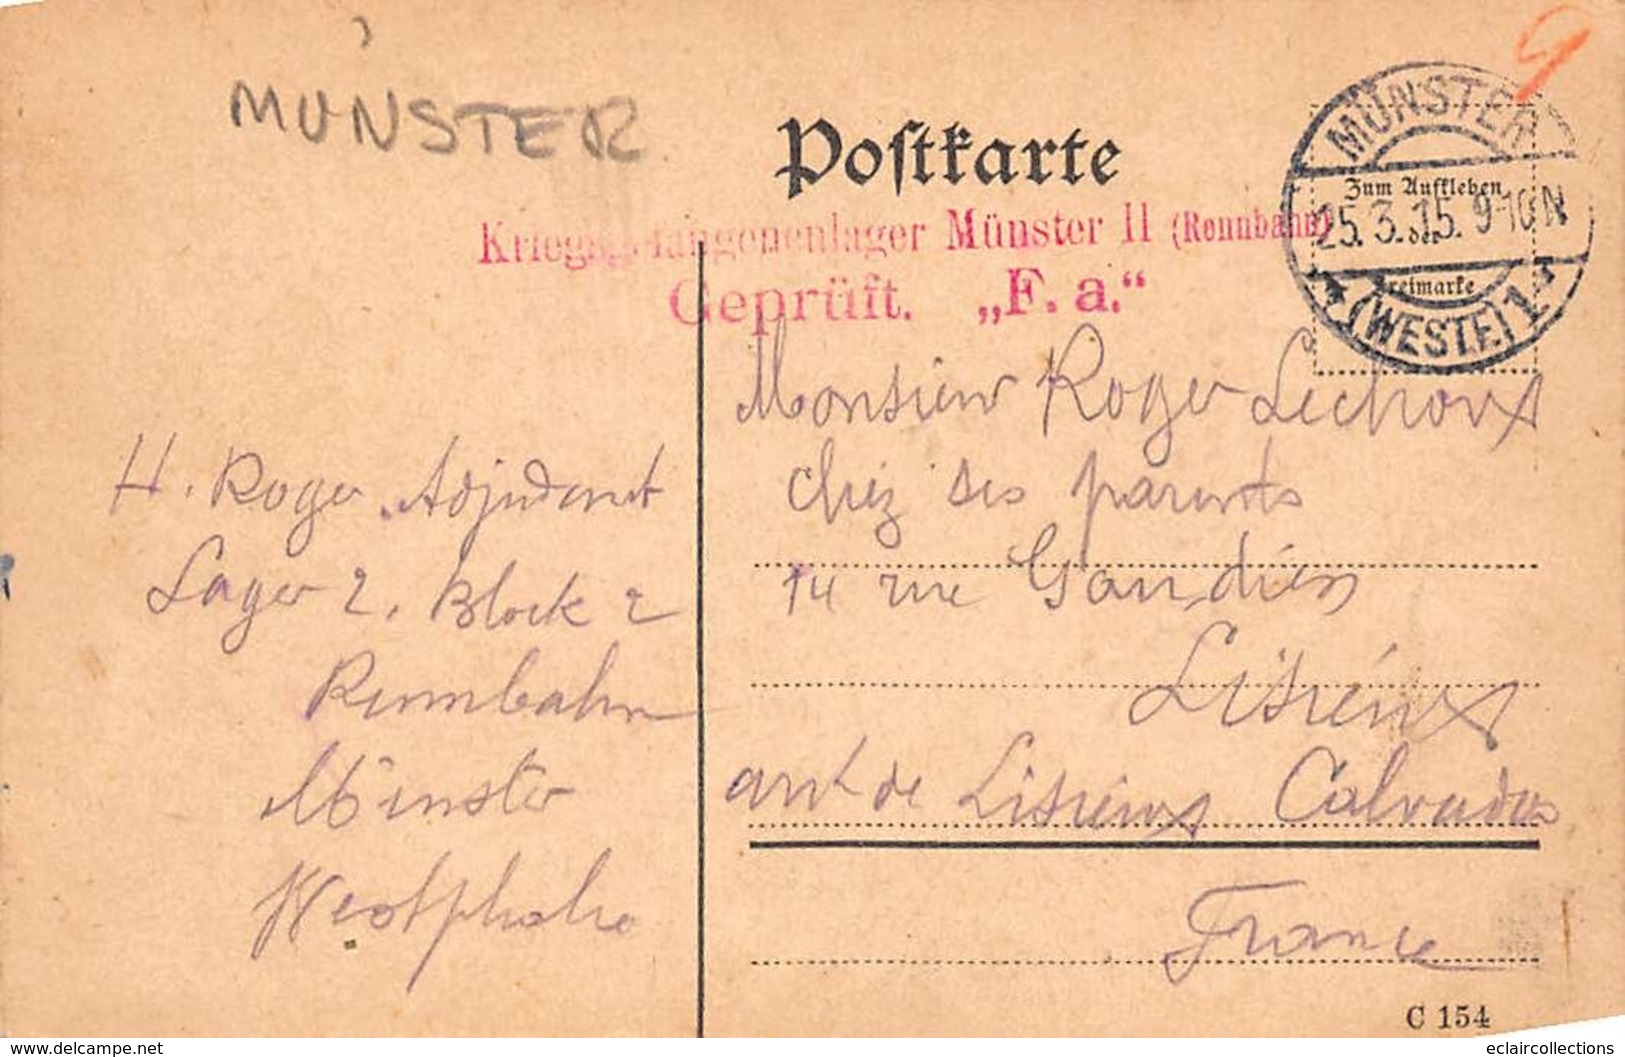 MÜNSTER
Postkarte
MÜNSTER
(WESTF.) 1
25.3.15. 9-10N
Zum Aufkleben
der
Freimarke
Kriegsgefangenenlager Münster II (Rennbahn)
Geprüft. „F. a.“
Monsieur Roger
chez ses parents
14 rue
Lisieux
de Lisieux Calvados
France
H. Roger Adjudant
Lager 2. Block 2
Rennbahn
Münster
Westphalie
C 154
www.delcampe.net
eclaircollections